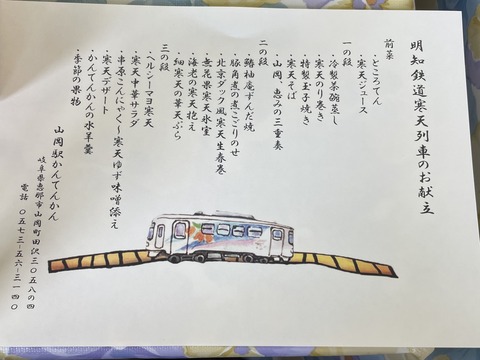 明知鉄道寒天列車のお献立
前菜
・ところてん
・寒天ジュース
一の段
・冷製茶碗蒸し
・寒天のり巻き
・特製玉子焼き
・寒天そば
・山岡、恵みの三重奏
二の段
・鰆柚庵ずんだ焼
・豚角煮の煮こごりのせ
・北京ダック風寒天生春巻
・無花果寒天氷室
・海老の寒天抱え
・細寒天の華天ぷら
三の段
・ヘルシーマヨ寒天
・寒天中華サラダ
・串原こんにゃく～寒天ゆず味噌添え
・寒天デザート
・かんてんかんの水羊羹
・季節の果物
山岡駅かんてんかん
岐阜県恵那市山岡町田沢３０５８の４
電話 ０５７３-５６-３１４０